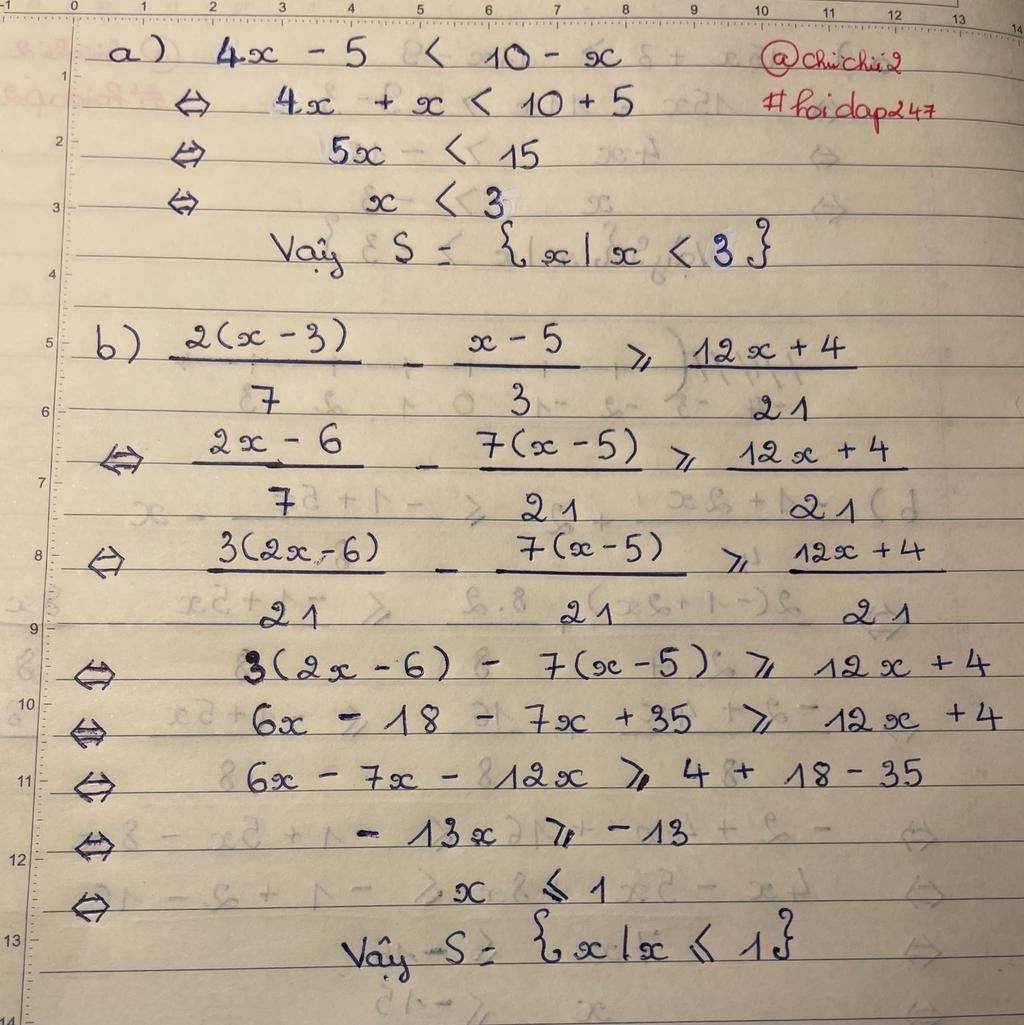 a) 4x - 5 < 10 - x
@chiichii2
⇔ 4x + x < 10 + 5
#hoidap247
⇔ 5x < 15
⇔ x < 3
Vậy S = {x | x < 3}
b) 2(x - 3)/7 - (x - 5)/3 ⩾ (12x + 4)/21
⇔ (2x - 6)/7 - 7(x - 5)/21 ⩾ (12x + 4)/21
⇔ 3(2x - 6)/21 - 7(x - 5)/21 ⩾ (12x + 4)/21
⇔ 3(2x - 6) - 7(x - 5) ⩾ 12x + 4
⇔ 6x - 18 - 7x + 35 ⩾ 12x + 4
⇔ 6x - 7x - 12x ⩾ 4 + 18 - 35
⇔ - 13x ⩾ - 13
⇔ x ⩽ 1
Vậy S = {x | x ⩽ 1}